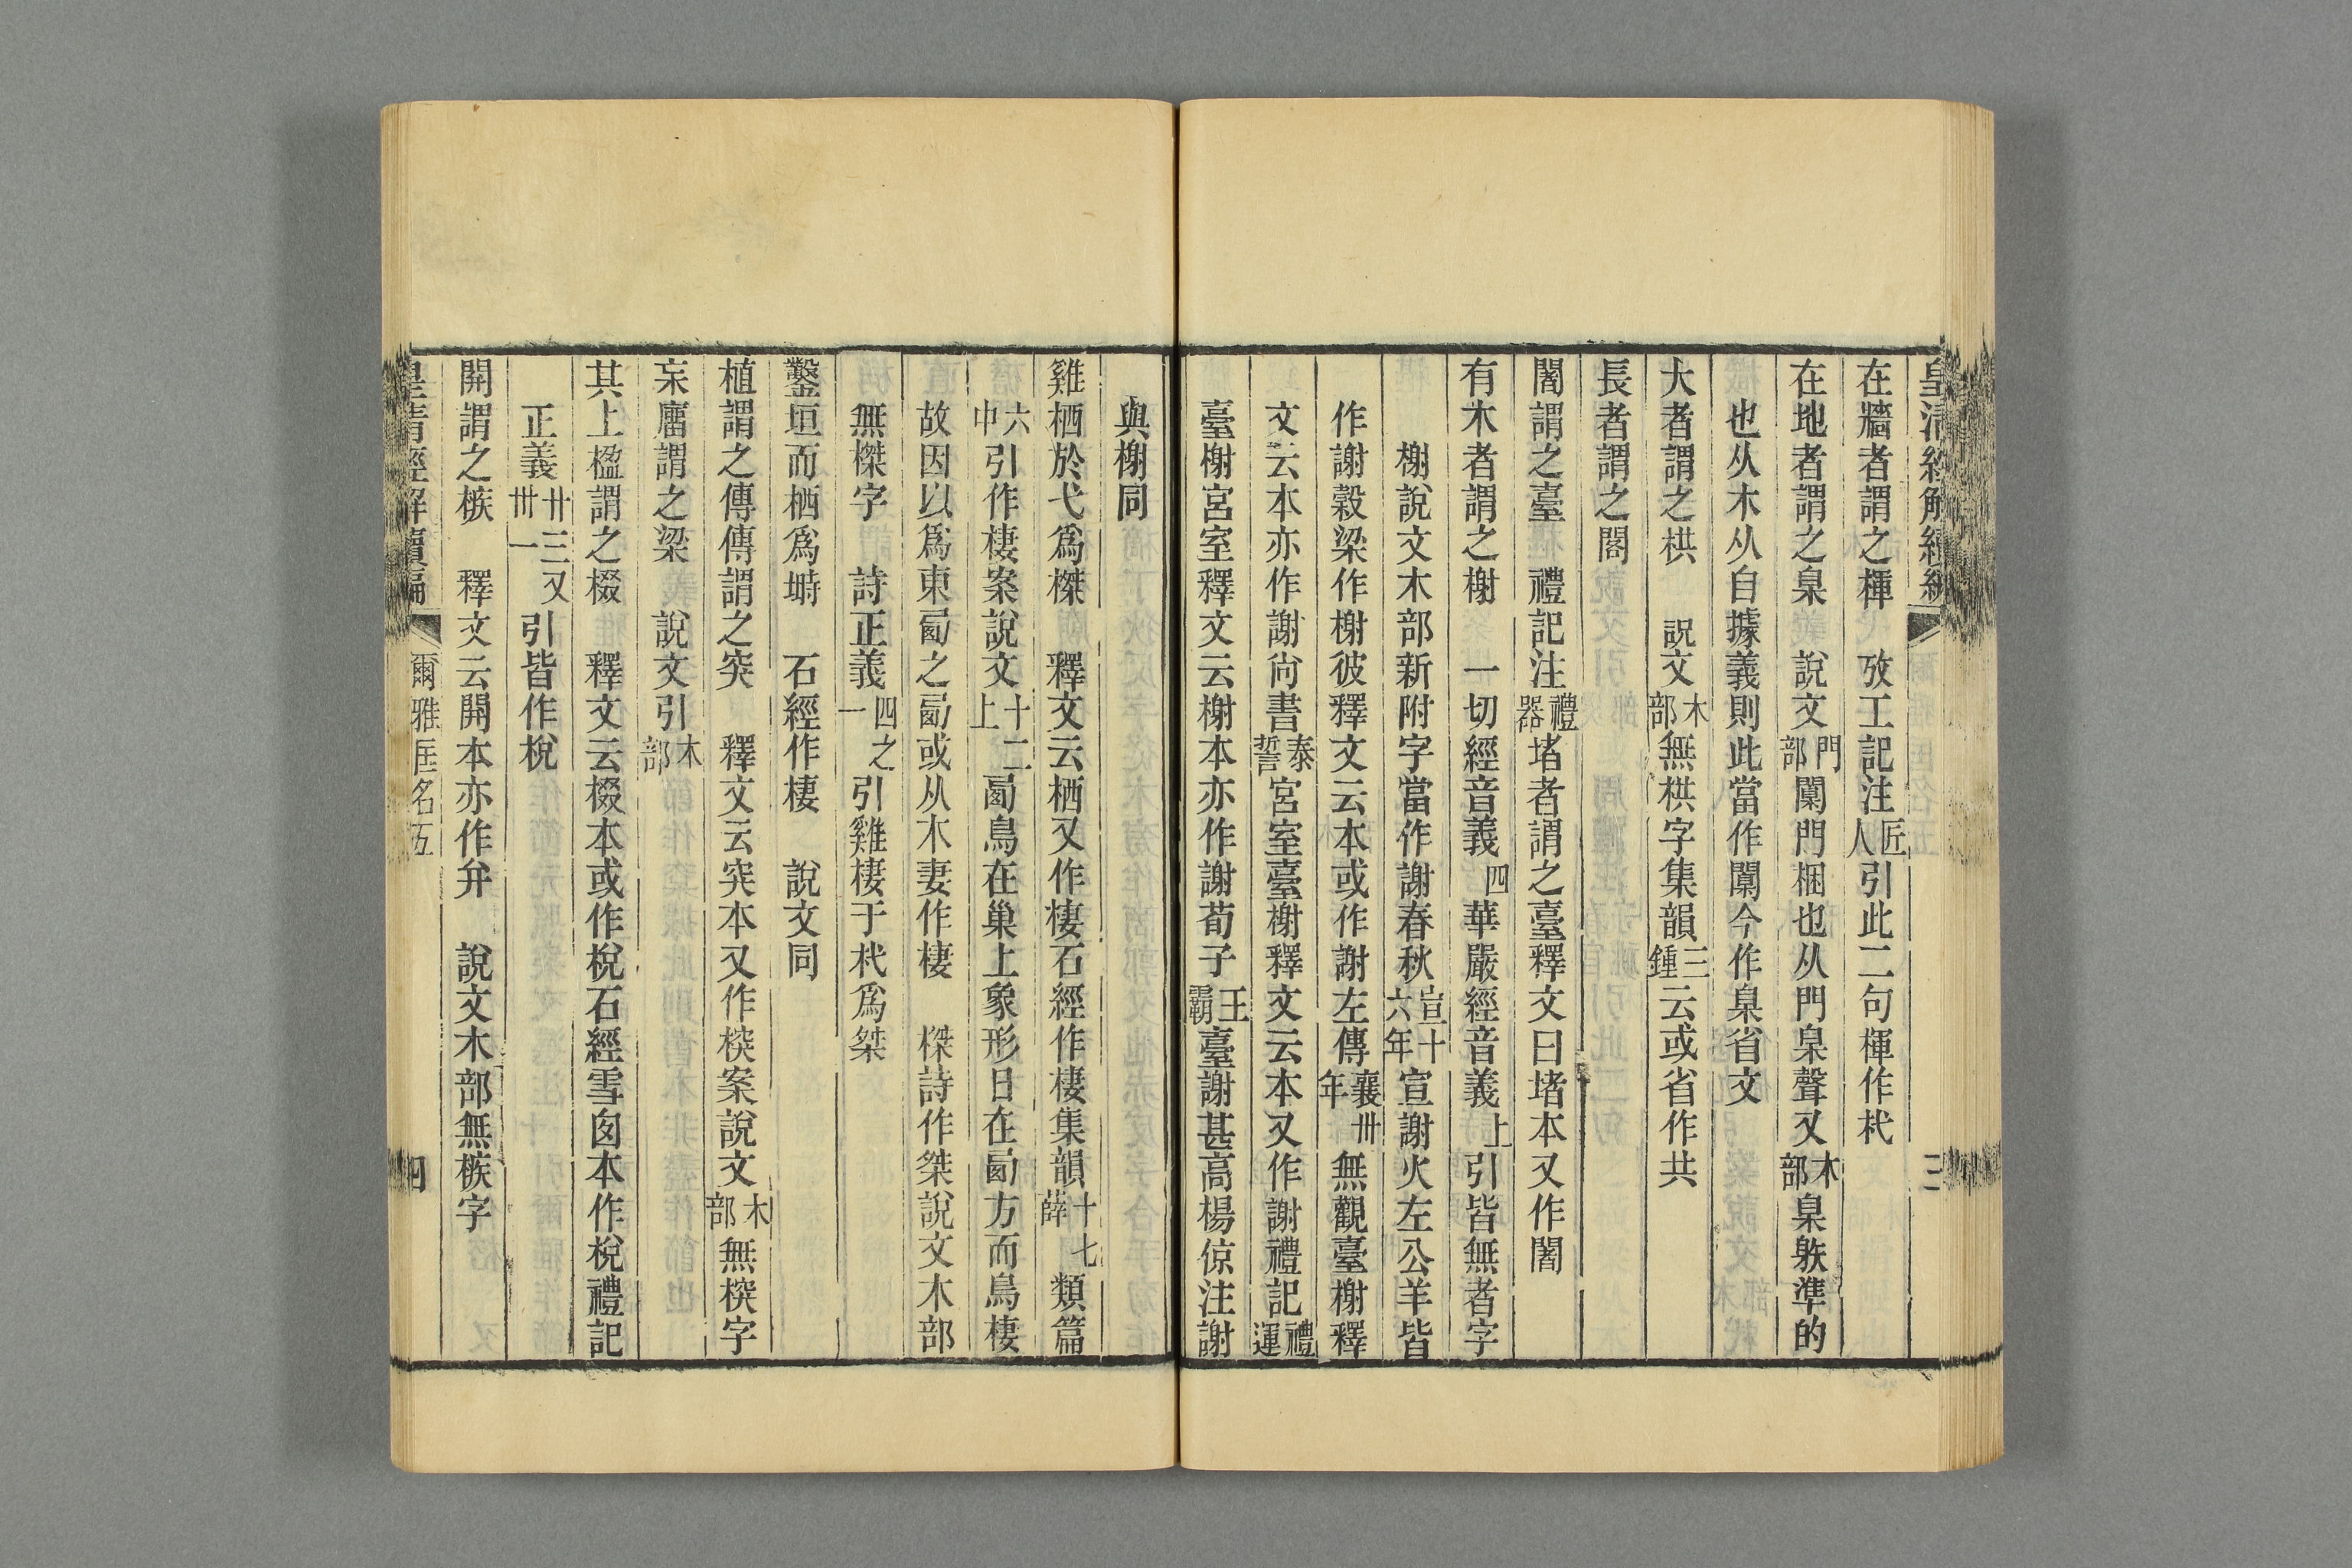 皇清經解續編 三
在牆者謂之楎 攷工記注匠人引此二句楎作杙
在地者謂之臬 說文門部闑門梱也从門臬聲又木部臬躲準的
也从木从自據義則此當作闑今作臬省文
大者謂之栱 説文木部無栱字集韻三鍾云或省作共
長者謂之閣
闍謂之臺 禮記注禮器堵者謂之臺釋文曰堵本又作闍
有木者謂之榭 一切經音義四華嚴經音義上引皆無者字
榭說文木部新附字當作謝春秋宣十六年宣謝火左公羊皆
作謝穀梁作榭彼釋文云本或作謝左傳襄卅年無觀臺榭釋
文云本亦作謝尙書泰誓宮室臺榭釋文云本又作謝禮記禮運
臺榭宮室釋文云榭本亦作謝荀子王霸臺謝甚高楊倞注謝
與榭同
雞栖於弋爲榤 釋文云栖又作棲石經作棲集韻十七薛類篇
六中引作棲案說文十二上㢴鳥在巢上象形日在㢴方而鳥棲
故因以爲東㢴之㢴或从木妻作棲 榤詩作桀說文木部
無榤字 詩正義四之一引雞棲于杙爲桀
鑿垣而栖爲塒 石經作棲 說文同
植謂之傳傳謂之突 釋文云突本又作揬案說文木部無揬字
杗廇謂之梁 說文引木部
其上楹謂之棳 釋文云棳本或作梲石經雪囱本作梲禮記
正義卅三又卌一引皆作梲
開謂之槉 釋文云開本亦作弁 說文木部無槉字
皇清經解續編 爾雅匡名五 四